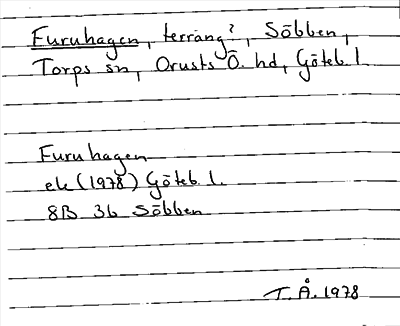 Furuhagen, terräng?, Söbben,
Torps sn, Orusts Ö. hd, Göteb. l.
Furuhagen
ek (1978) Göteb. l.
8B 3b Söbben
T. Å. 1978